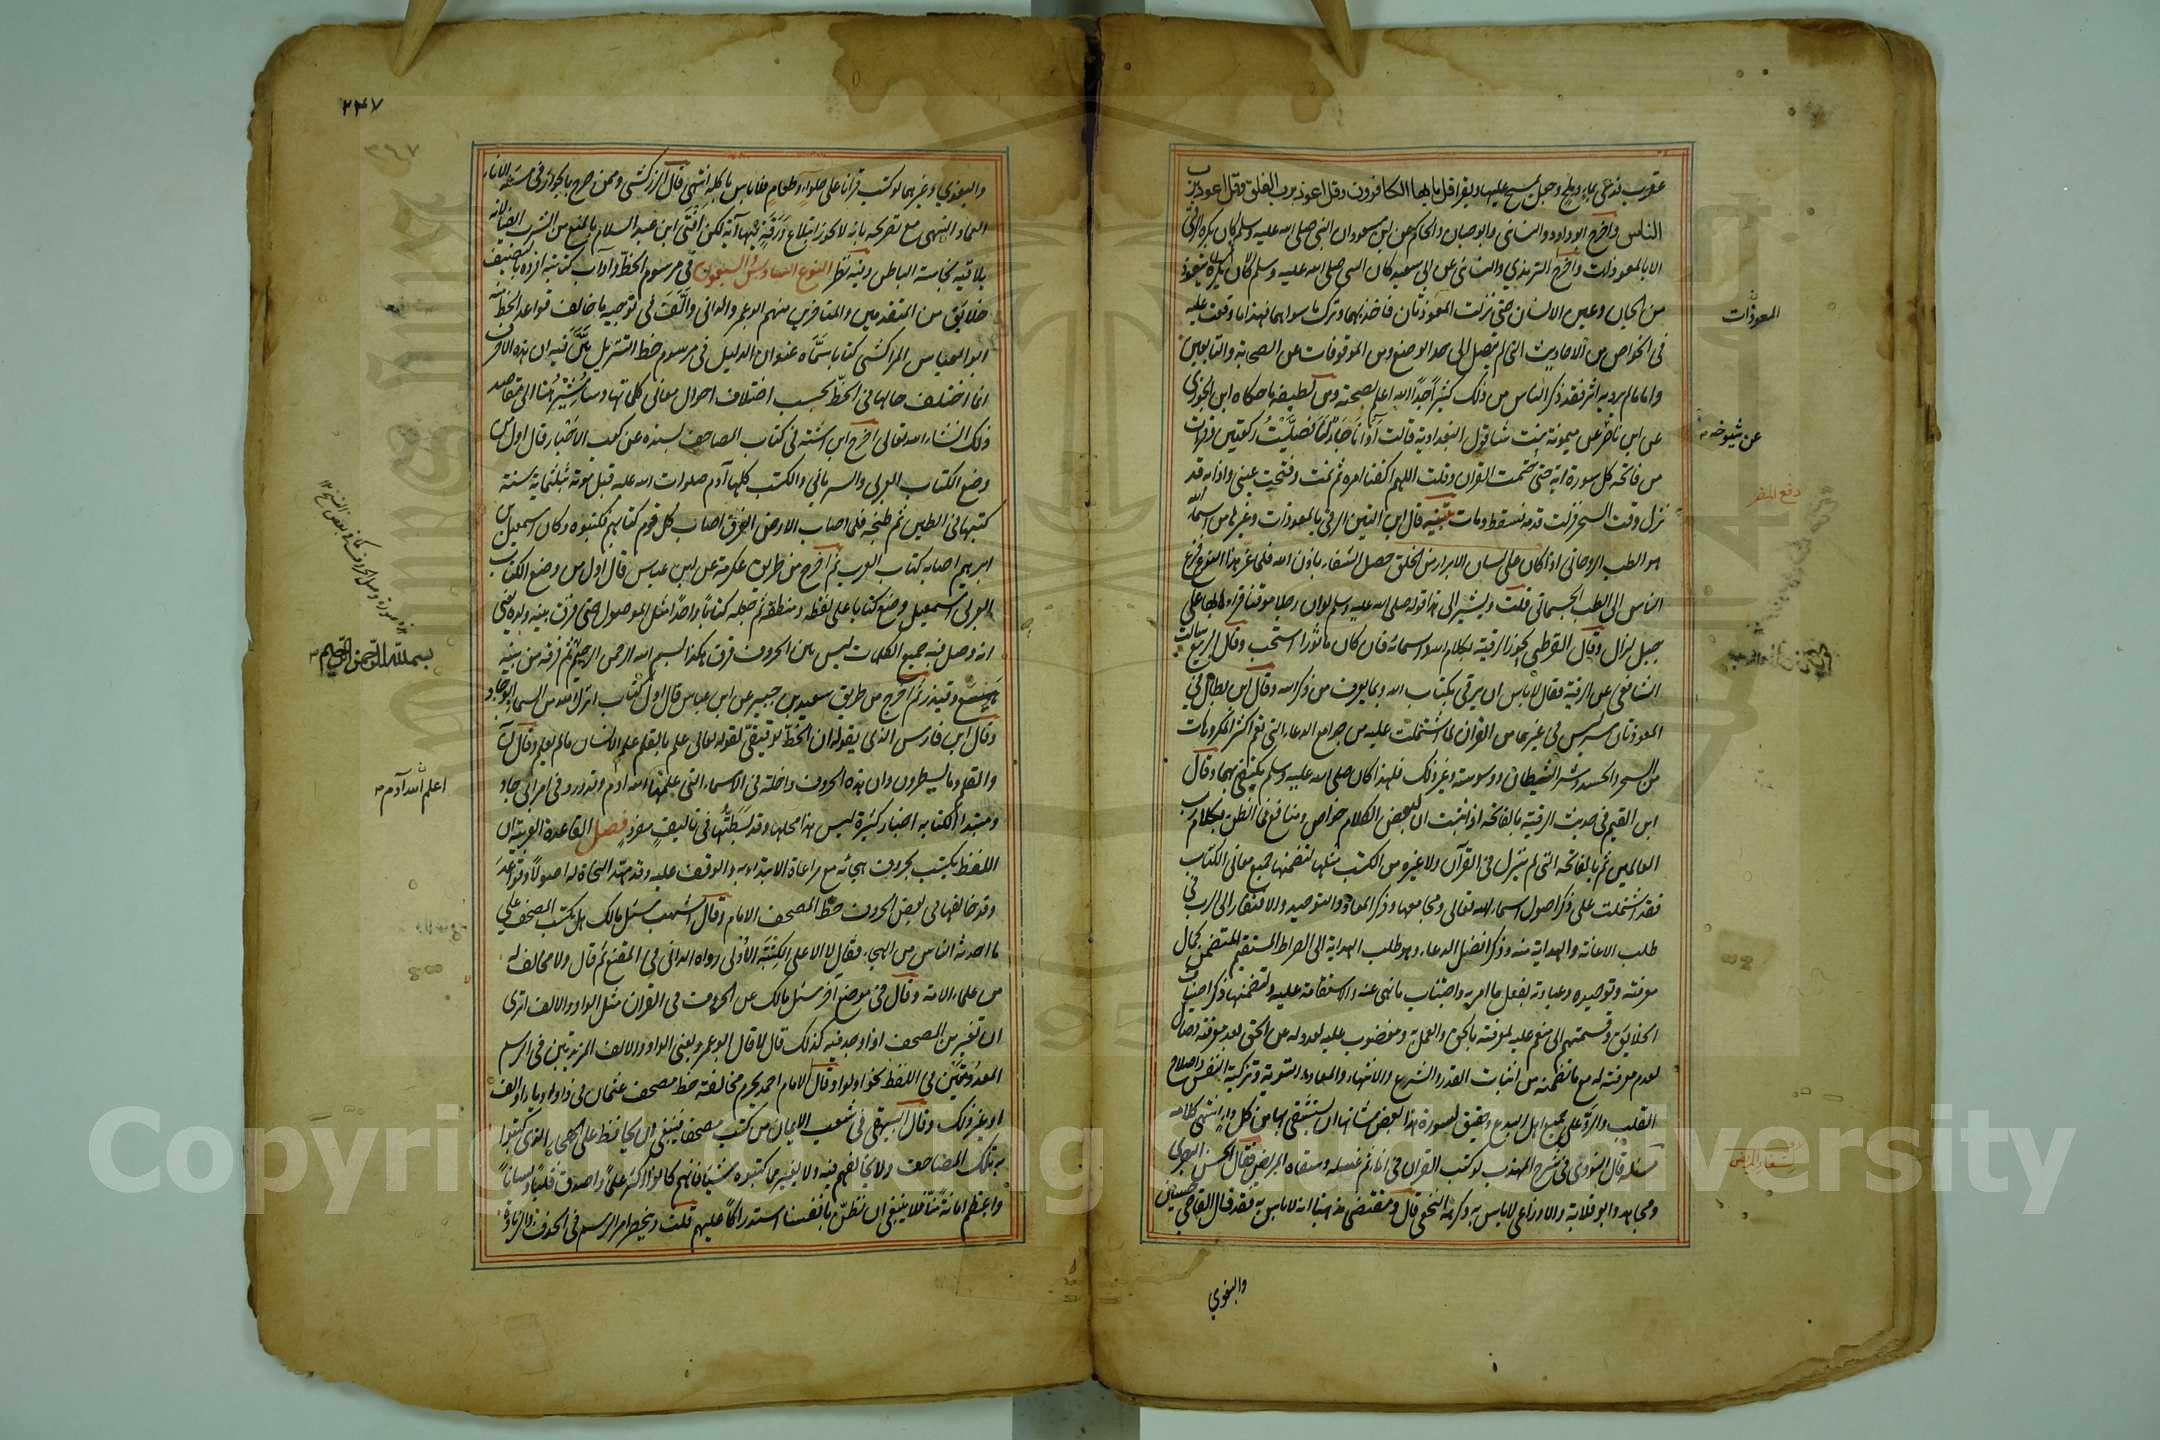 عقرب فدعى بماء وملح وجعل يمسح عليها ويقرأ قل يا ايها الكافرون وقل اعوذ برب الفلق وقل اعوذ برب
الناس واخرج ابو داود والنسائي وابن حبان والحاكم عن ابن مسعود ان النبي صلى الله عليه وسلم كان يكره الرقى
الا بالمعوذات واخرج الترمذي والنسائي عن ابي سعيد كان النبي صلى الله عليه وسلم يتعوذ
من الجان وعين الانسان حتى نزلت المعوذتان فاخذ بهما وترك ما سواهما فهذا ما وقفت عليه
في الخواص من الاحاديث التي لم يصل الى حد الوضع ومن الموقوفات عن الصحابة والتابعين
واما ما لم يرد به اثر فقد ذكر الناس من ذلك كثيرا جدا الله اعلم بصحته ومن لطيفه ما حكاه ابن الجوزي
عن ابن ناصر عن ميمونة بنت شاقول البغدادية قالت آذانا جار لنا فصليت ركعتين وقرات
من فاتحة كل سورة اية حتى ختمت القران وقلت اللهم اكفنا امره ثم نمت وفتحت عيني واذا به قد
نزل وقت السحر فزلت قدمه فسقط ومات تنبيه قال ابن التين الرقى بالمعوذات وغيرها من اسماء الله
هو الطب الروحاني اذا كان على لسان الابرار من الخلق حصل الشفاء باذن الله فلما عز هذا النوع فزع
الناس الى الطب الجسماني قلت ويشير الى هذا قوله صلى الله عليه وسلم لو ان رجلا موقنا قرأ بها على
جبل لزال وقال القرطبي تجوز الرقية بكلام الله واسمائه فان كان ماثورا استحب وقال الربيع سالت
الشافعي عن الرقية فقال لا باس ان يرقى بكتاب الله وبما يعرف من ذكر الله وقال ابن بطال في
المعوذتان سر ليس في غيرهما من القران لما اشتملت عليه من جوامع الدعاء التي تعم اكثر المكروهات
من السحر والحسد وشر الشيطان ووسوسته وغير ذلك فلهذا كان صلى الله عليه وسلم يكتفي بهما وقال
ابن القيم في حديث الرقية بالفاتحة اذا ثبت ان لبعض الكلام خواص ومنافع فما الظن بكلام رب
العالمين ثم بالفاتحة التي لم ينزل في القران ولا غيره من الكتب مثلها لتضمنها جميع معاني الكتاب
فقد اشتملت على ذكر اصول اسماء الله تعالى ومجامعها وذكر المعاد والتوحيد والافتقار الى الرب في
طلب الاعانة والهداية منه وذكر افضل الدعاء وهو طلب الهداية الى الصراط المستقيم المتضمن كمال
معرفته وتوحيده وعبادته بفعل ما امر به واجتناب ما نهى عنه والاستقامة عليه ولتضمنها ذكر اصناف
الخلايق وقسمتهم الى منعم عليه لمعرفته بالحق والعمل به ومغضوب عليه لعدوله عن الحق بعد معرفته وضال
لعدم معرفته له مع ما تضمنه من اثبات القدر والشرع والاسماء والمعاد والتوبة وتزكية النفس واصلاح
القلب والرد على جميع اهل البدع وحقيق لسورة هذا بعض شانها ان يستشفى بها من كل داء انتهى كلامه
مسئلة قال النووي في شرح المهذب لو كتب القران في اناء ثم غسله وسقاه المريض فقال الحسن البصري
ومجاهد وابو قلابة والاوزاعي لا باس به وكرهه النخعي قال ومقتضى مذهبنا انه لا باس به فقد قال القاضي حسين
والبغوي
المعوذات
عن شيوخه
والبغوي وغيرهما لو كتب قرانا على حلواء وطعام فلا باس باكله انتهى قال الزركشي وممن صرح بالجواز في مسئلة الاناء
العماد النيهي مع تصريحه بانه لا يجوز ابتلاع ورقة فيها آية لكن افتى ابن عبد السلام بالمنع من الشرب ايضا لانه
يلاقيه نجاسة الباطن وفيه نظر النوع السادس والسبعون في مرسوم الخط وآداب كتابته افرده بالتصنيف
خلايق من المتقدمين والمتاخرين منهم ابو عمرو الداني والف في توجيه ما خالف قواعد الخط منه
ابو العباس المراكشي كتابا سماه عنوان الدليل في مرسوم خط التنزيل بين فيه ان هذه الاحرف
انما اختلف حالها في الخط بحسب اختلاف احوال معاني كلماتها وساشير هنا الى مقاصد
ذلك ان شاء الله تعالى اخرج ابن اشتة في كتاب المصاحف بسنده عن كعب الاحبار قال اول من
وضع الكتاب العربي والسرياني والكتب كلها آدم صلوات الله عليه قبل موته بثلثماية سنة
كتبها في الطين ثم طبخه فلما اصاب الارض الغرق اصاب كل قوم كتابهم فكتبوه فكان اسمعيل بن
ابرهيم اصاب كتاب العرب ثم اخرج من طريق عكرمة عن ابن عباس قال اول من وضع الكتاب
بالعربي اسمعيل وضع كتابا على لفظه ومنطقه ثم جعله كتابا واحدا مثل الموصول حتى فرق بينه ولده يعني
انه وصل فيه جميع الكلمات ليس بين الحروف فرق هكذا بسم الله الرحمن الرحيم ثم فرقه من بنيه
هميسع وقيذر ثم اخرج من طريق سعيد بن جبير عن ابن عباس قال اول كتاب انزل الله من السماء ابو جاد
وقال ابن فارس الذي يقوله ان الخط توقيفي لقوله تعالى علم بالقلم علم الانسان ما لم يعلم وقال ن
والقلم وما يسطرون وان هذه الحروف داخلة في الاسماء التي علمها الله ادم وقد ورد في امر ابي جاد
ومبتدا الكتابه اخبار كثيرة ليس هذا محلها وقد بسطتها في تاليف مفرد فصل القاعدة العربية ان
اللفظ يكتب بحروف هجائه مع مراعاة الابتداء به والوقف عليه وقد مهد النحاة له اصولا وقواعد
وقد خالفها في بعض الحروف خط المصحف الامام وقال اشهب سئل مالك هل يكتب المصحف على
ما احدثه الناس من الهجاء فقال لا الا على الكتبة الاولى رواه الداني في المقنع ثم قال ولا مخالف له
من علماء الامة وقال في موضع آخر سئل مالك عن الحروف في القران مثل الواو والالف اترى
ان تغير من المصحف اذا وجد فيه كذلك قال لا قال ابو عمرو يعني الواو والالف المزيدتين في الرسم
المعدومتين في اللفظ نحو اولوا وقال الامام احمد يحرم مخالفة خط مصحف عثمان في واو او ياء او الف
او غير ذلك وقال البيهقي في شعب الايمان من كتب مصحفا فينبغي ان يحافظ على الهجاء الذي كتبوا
به تلك المصاحف ولا يخالفهم فيه ولا يغير مما كتبوه شيئا فانهم كانوا اكثر علما واصدق قلبا ولسانا
واعظم امانة منا فلا ينبغي ان نظن بانفسنا استدراكا عليهم قلت وينحصر امر الرسم في الحذف والزيادة
٢٤٧
بسم الله الرحمن الرحيم
اعلم الله آدم
Copyright © King Saud University